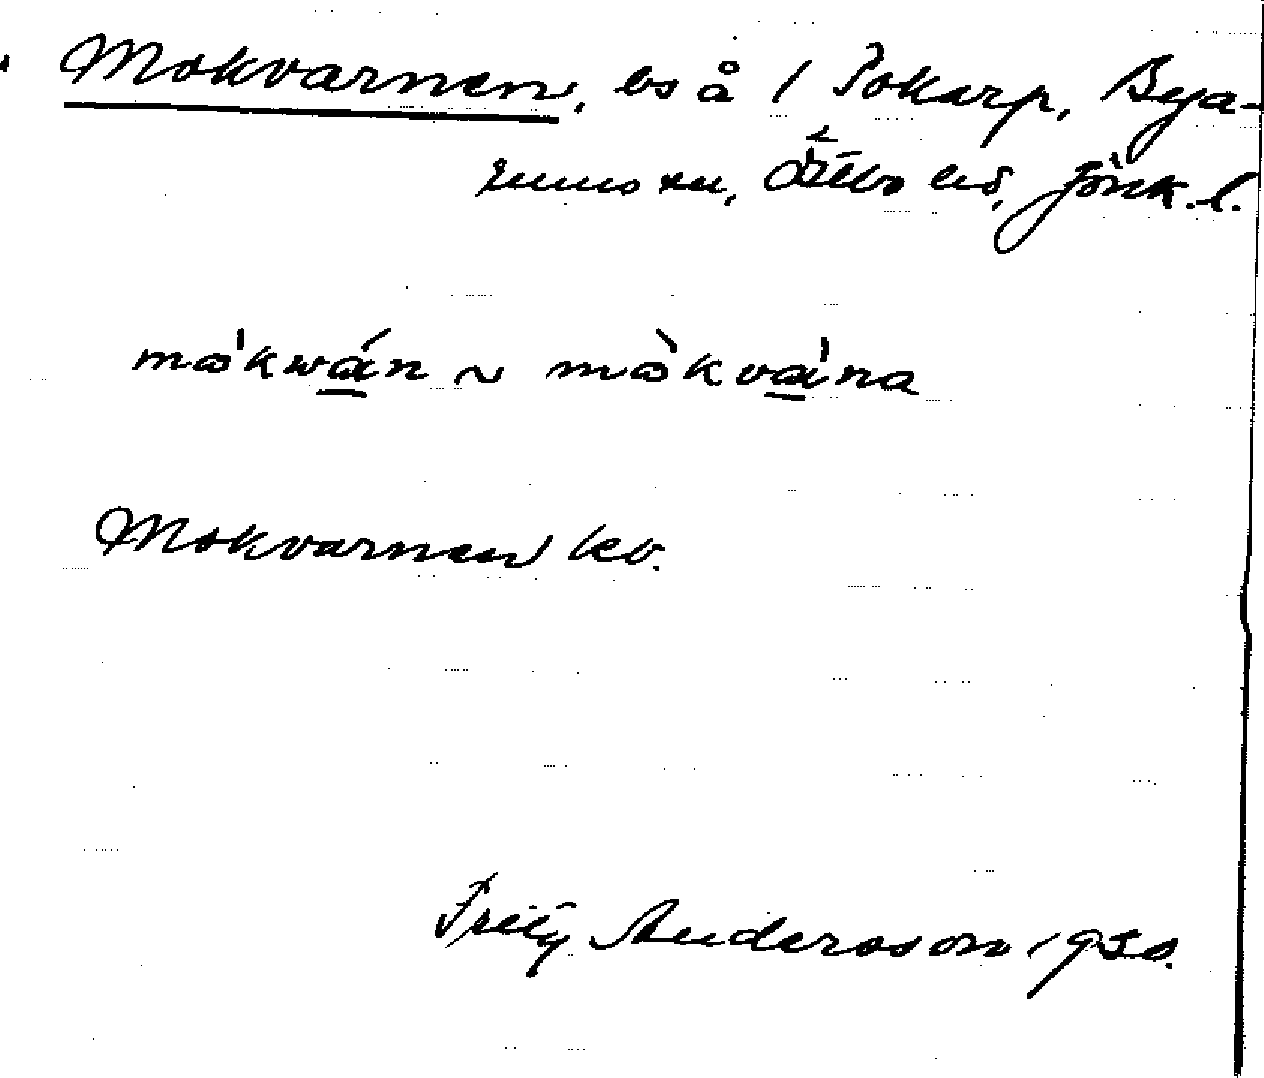 Mokvarnen, bs å / Pokarp, Bya-
rums sn, Östbo hd, Jönk. l.
mòkwán ~ mòkvána
Mokvarnen kv.
Fritz Andersson 1930.